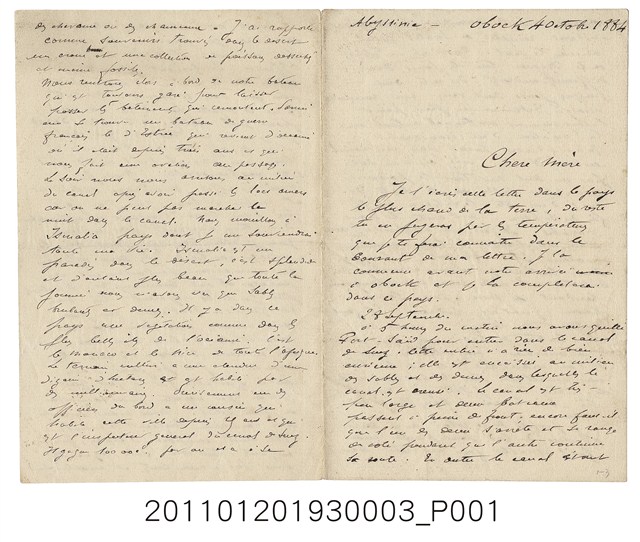 Abyssinie - Obock 4 Octobre 1884
Chère Mère
Je t'écris cette lettre dans le pays
le plus chaud de la terre, du reste
tu en jugeras par les températures
que je te ferai connaître dans le
courant de ma lettre. Je la
commence avant notre arrivée
à obock et je la completerai
dans ce pays.
23 Septembre.
à 5 heures du matin nous avons quitté
Port-Saïd pour entrer dans le canal
de Suez. Cette entrée n'a rien de bien
; elle est au milieu
des sables et des dunes dans lesquelles le
canal est creusé. Le canal est très
peu large et deux bateaux
passent à peine de front, encore faut-il
que l'un des deux s'arrête et se range
de côté pendant que l'autre continue
sa route. En outre le canal étant
J'ai rapporté
comme souvenirs trouvés dans le désert
et une collection de poissons desséchés
et même fossiles.
Nous rentrons alors à bord de notre bateau
qui est toujours garé pour laisser
passer les bâtiments qui remontent. Parmi
eux se trouve un bateau de guerre
français le d'Estrée qui revient d'
où il était depuis trois ans et qui
nous fait une ovation au passage.
Le soir nous nous arrêtons au milieu
du canal après avoir passé les lacs amers
car on ne peut pas marcher la
nuit dans le canal. Nous mouillons à
Ismalia pays dont je me souviendrai
toute ma vie. Ismalia est un
paradis dans le désert, c'est splendide
et d'autant plus beau que toute la
journée nous n'avons vu que sable
brulant et dunes. Il y a dans ce
pays une végétation comme dans les
plus belles îles de l'océanie. C'est
le Monaco et le Nice de toute l'afrique.
Le terrain cultivé a une étendue d'une
d'hectares et est habité par
des millionnaires.
officiers du bord a un cousin qui
habite cette ville depuis 11 ans et qui
est l'inspecteur général du canal de Suez.
Il gagne 100 000 f. par an et a à sa
201101201930003_P001